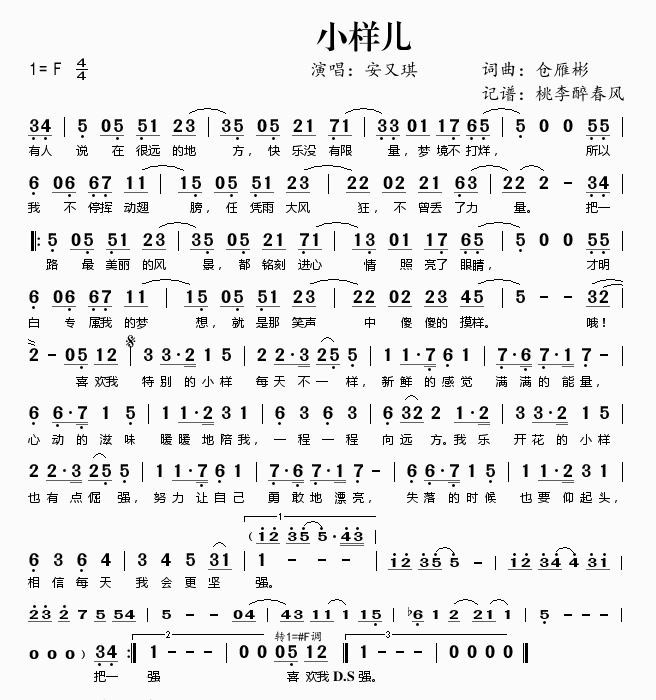 小样儿
1= F 4/4
演唱：安又琪 词曲：仓雁彬
记谱：桃李醉春风
34 | 5 05 51 23 | 35 05 21 71 | 33 01 17 65 | 5 0 0 55 |
有人 说 在 很远 的地 方，快 乐没 有限 量，梦 境不 打烊， 所以
6 06 67 11 | 15 05 51 23 | 22 02 21 63 | 22 2 - 34 |
我 不 停挥 动翅 膀，任 凭雨 大风 狂，不 曾丢 了力 量。 把一
‖: 5 05 51 23 | 35 05 51 71 | 13 01 17 65 | 5 0 0 55 |
路 最 美丽 的风 景，都 铭刻 进心 情 照 亮了 眼睛， 才明
6 06 67 11 | 15 05 51 23 | 22 02 23 45 | 5 - - 32 |
白 专 属我 的梦 想，就 是那 笑声 中 傻 傻的 摸样。 哦！
2 - 05 12 | 3 3 3·2 1 5 | 2 2 2·3 25 5 | 1 1 1·7 6 1 | 7·6 7·1 7 - |
喜 欢我 特 别 的 小 样 每 天 不 一 样，新 鲜 的 感 觉 满 满 的 能 量，
6 6·7 1 5 | 1 1 1·2 3 1 | 6 3 6 3 | 6 32 2 1·2 | 3 3·2 1 5 |
心 动 的 滋 味 暖 暖 地 陪 我，一 程 一 程 向 远 方。我 乐 开 花 的 小 样
2 2·3 25 5 | 1 1·7 6 1 | 7·6 7·1 7 - | 6 6·7 1 5 | 1 1 1·2 3 1 |
也 有 点 倔 强，努 力 让 自 己 勇 敢 地 漂 亮， 失 落 的 时 候 也 要 仰 起 头，
1
( i2 35 5 · 43 |
6 3 6 4 | 3 4 5 31 | 1 - - - | i2 35 5 - | i2 34 4 31 |
相 信 每 天 我 会 更 坚 强。
23 2 7 5 54 | 5 - - 04 | 43 11 1 15 | ♭6 1 2 21 1 | 5 - - - |
2 转1=#F调 3
0 0 0 ) 34 :‖ 1 - - - | 0 0 05 12 ‖ 1 - - - | 0 0 0 0 ‖
把一 强 喜 欢我 D.S 强。